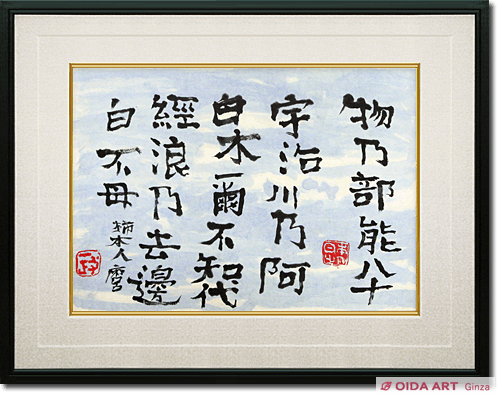 物乃部能八十
宇治川乃阿
白木爾不知代
經浪乃去邊
白不母
柿本人麿
OIDA ART Ginza